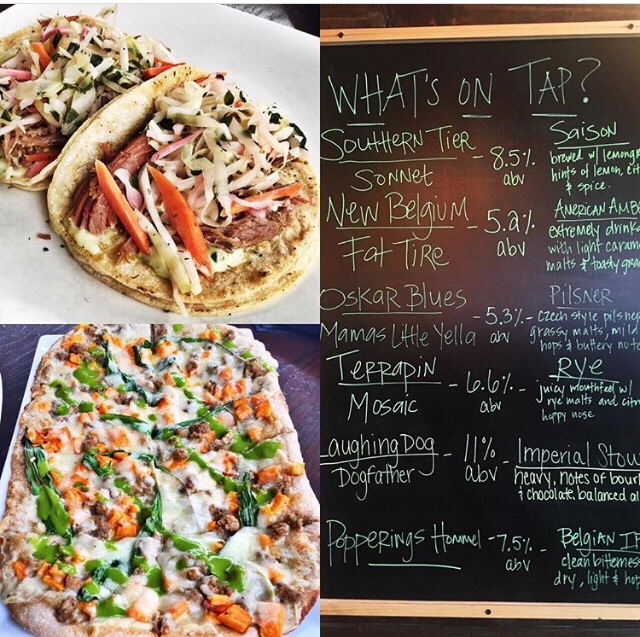 WHAT'S ON TAP?
SOUTHERN TIER
SONNET
- 8.5%
abv
SAISON
brewed w/ lemongr
hints of lemon, cit
& spice.
NEW BELGIUM
FAT TIRE
- 5.2%
abv
AMERICAN AMB
extremely drink
with light caram
malts & toasty grai
OSKAR BLUES
MAMAS LITTLE YELLA
- 5.3% -
abv
PILSNER
czech style pilsne
grassy malts, mild
hops & buttery note
TERRAPIN
MOSAIC
- 6.6% -
abv
RYE
juicy mouthfeel w/
rye malts and citru
hoppy nose
aughing DOG
DOGFATHER
- 11% -
abv
IMPERIAL STOU
heavy, notes of bour
& chocolate balanced al
POPPERINGS HOMMEL
- 7.5% -
abv
BELGIAN IP
clean bitterness
dry, light & hop